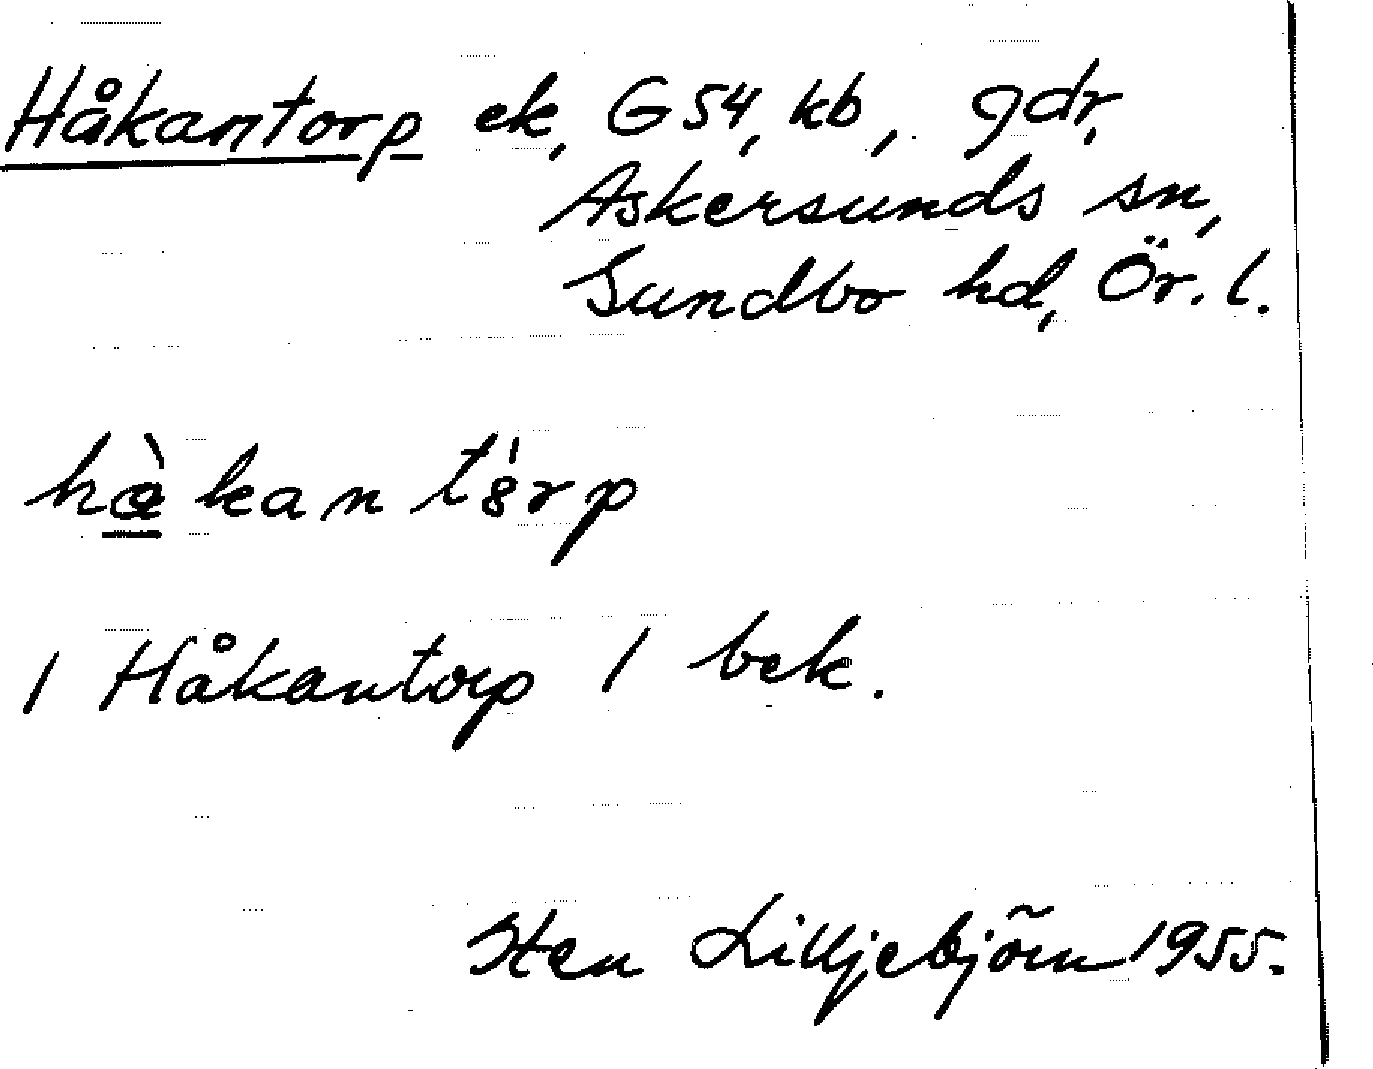 Håkantorp ek, G54, kb, gdr,
Askersunds sn,
Sundbo hd, Ör. l.
hå̀kantórp
1 Håkantorp 1 bek.
Sten Lilljebjörn 1955.